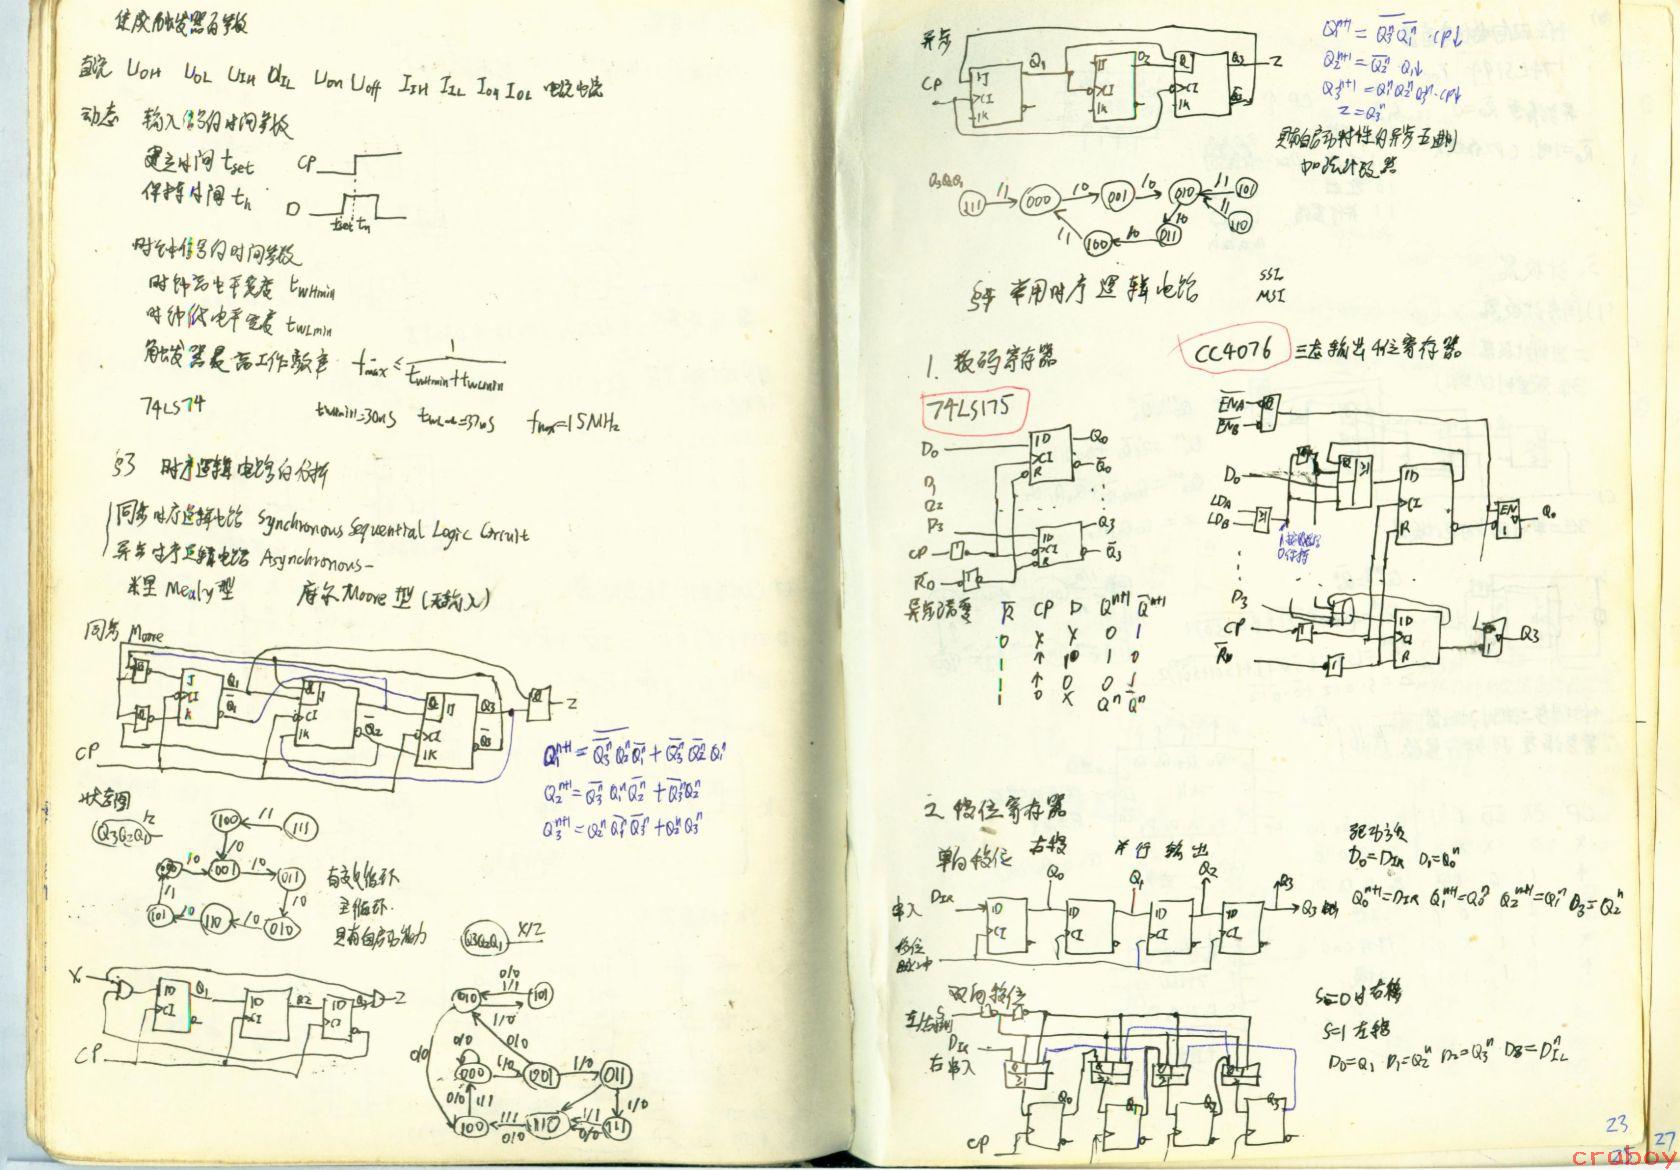 集成触发器的参数
直流 UOH UOL UIH UIL Uon Uoff IIH IIL IOH IOL 电流
动态 输入信号的时间参数
建立时间 tset CP
保持时间 th D
tset th
时钟信号的时间参数
时钟高电平宽度 tWHmin
时钟低电平宽度 tWLmin
触发器最高工作频率 fmax ≤ 1/(tWHmin+tWLmin)
74LS74 tWHmin=30ns tWLmin=37ns fmax=15MHz
§3 时序逻辑电路的分析
同步时序逻辑电路 Synchronous Sequential Logic Circuit
异步时序逻辑电路 Asynchronous-
米里 Mealy型 摩尔 Moore 型(无输入)
同步 Moore
J CI K Q1 Q̄1 J CI 1K Q̄2 1J CI 1K Q3 Q̄3 Z
CP
Q1^n+1 = Q̄3^n Q̄2^n Q̄1^n + Q̄3^n Q̄2^n Q1^n
Q2^n+1 = Q̄3^n Q1^n Q̄2^n + Q̄3^n Q2^n
Q3^n+1 = Q2^n Q1^n Q̄3^n + Q2^n Q3^n
状态图
Q3Q2Q1 /Z
100 /1 111
/0
000 /0 001 /0 011
/1 /0
101 /0 110 /0 010
有效循环
主循环
具有自启动能力
Q3Q2Q1 X/Z
X 1D CI Q1 1D CI Q2 1D Q3 Z
CP
010 0/0 1/1 101
1/0
0/0 0/0 0/0
000 1/0 001 1/0 011
0/0 1/1 1/0
100 1/1 0/0 110 1/1 0/0 111
异步
CP 1J CI 1K Q1 1J CI 1K Q2 CI 1K Q3 Q̄3 Z
Q1^n+1 = Q̄3^n Q̄1^n · CP↓
Q2^n+1 = Q̄2^n Q1↓
Q3^n+1 = Q1^n Q2^n Q̄3^n · CP↓
Z = Q3^n
具有自启动特性的异步五进制
加法计数器
Q3Q2Q1
111 /1 000 /0 001 /0 010 /1 101
/1 110
/1 100 /0 011 /0
§4 常用时序逻辑电路
SSI
MSI
1. 数码寄存器
CC4076 三态输出4位寄存器
74LS175
D0 1D CI R Q0 Q̄0
D1
D2
D3 1D CI R Q3 Q̄3
CP
R̄D
异步清零 R̄ CP D Q^n+1 Q̄^n+1
0 X X 0 1
1 ↑ 1 1 0
1 ↑ 0 0 1
1 0 X Q^n Q̄^n
ENA
ENB
D0 1D CI R EN Q0
LDA
LDB
0保持
D3 1D CI R Q3
CP
R̄D
2. 移位寄存器
单向移位 右移 并行输出
驱动方程
D0=DIR D1=Q0^n
Q0 Q1 Q2 Q3
串入 DIR 1D CI 1D CI 1D CI 1D CI Q3
移位脉冲
Q0^n+1=DIR Q1^n+1=Q0^n Q2^n+1=Q1^n D3=Q2^n
双向移位
S
左/右控制
DIR
右串入
Q0 Q1 Q2 Q3
CP
S=0时右移
S=1 左移
D0=Q1 D1=Q2^n D2=Q3^n D3=DIL
23
27
cruboy